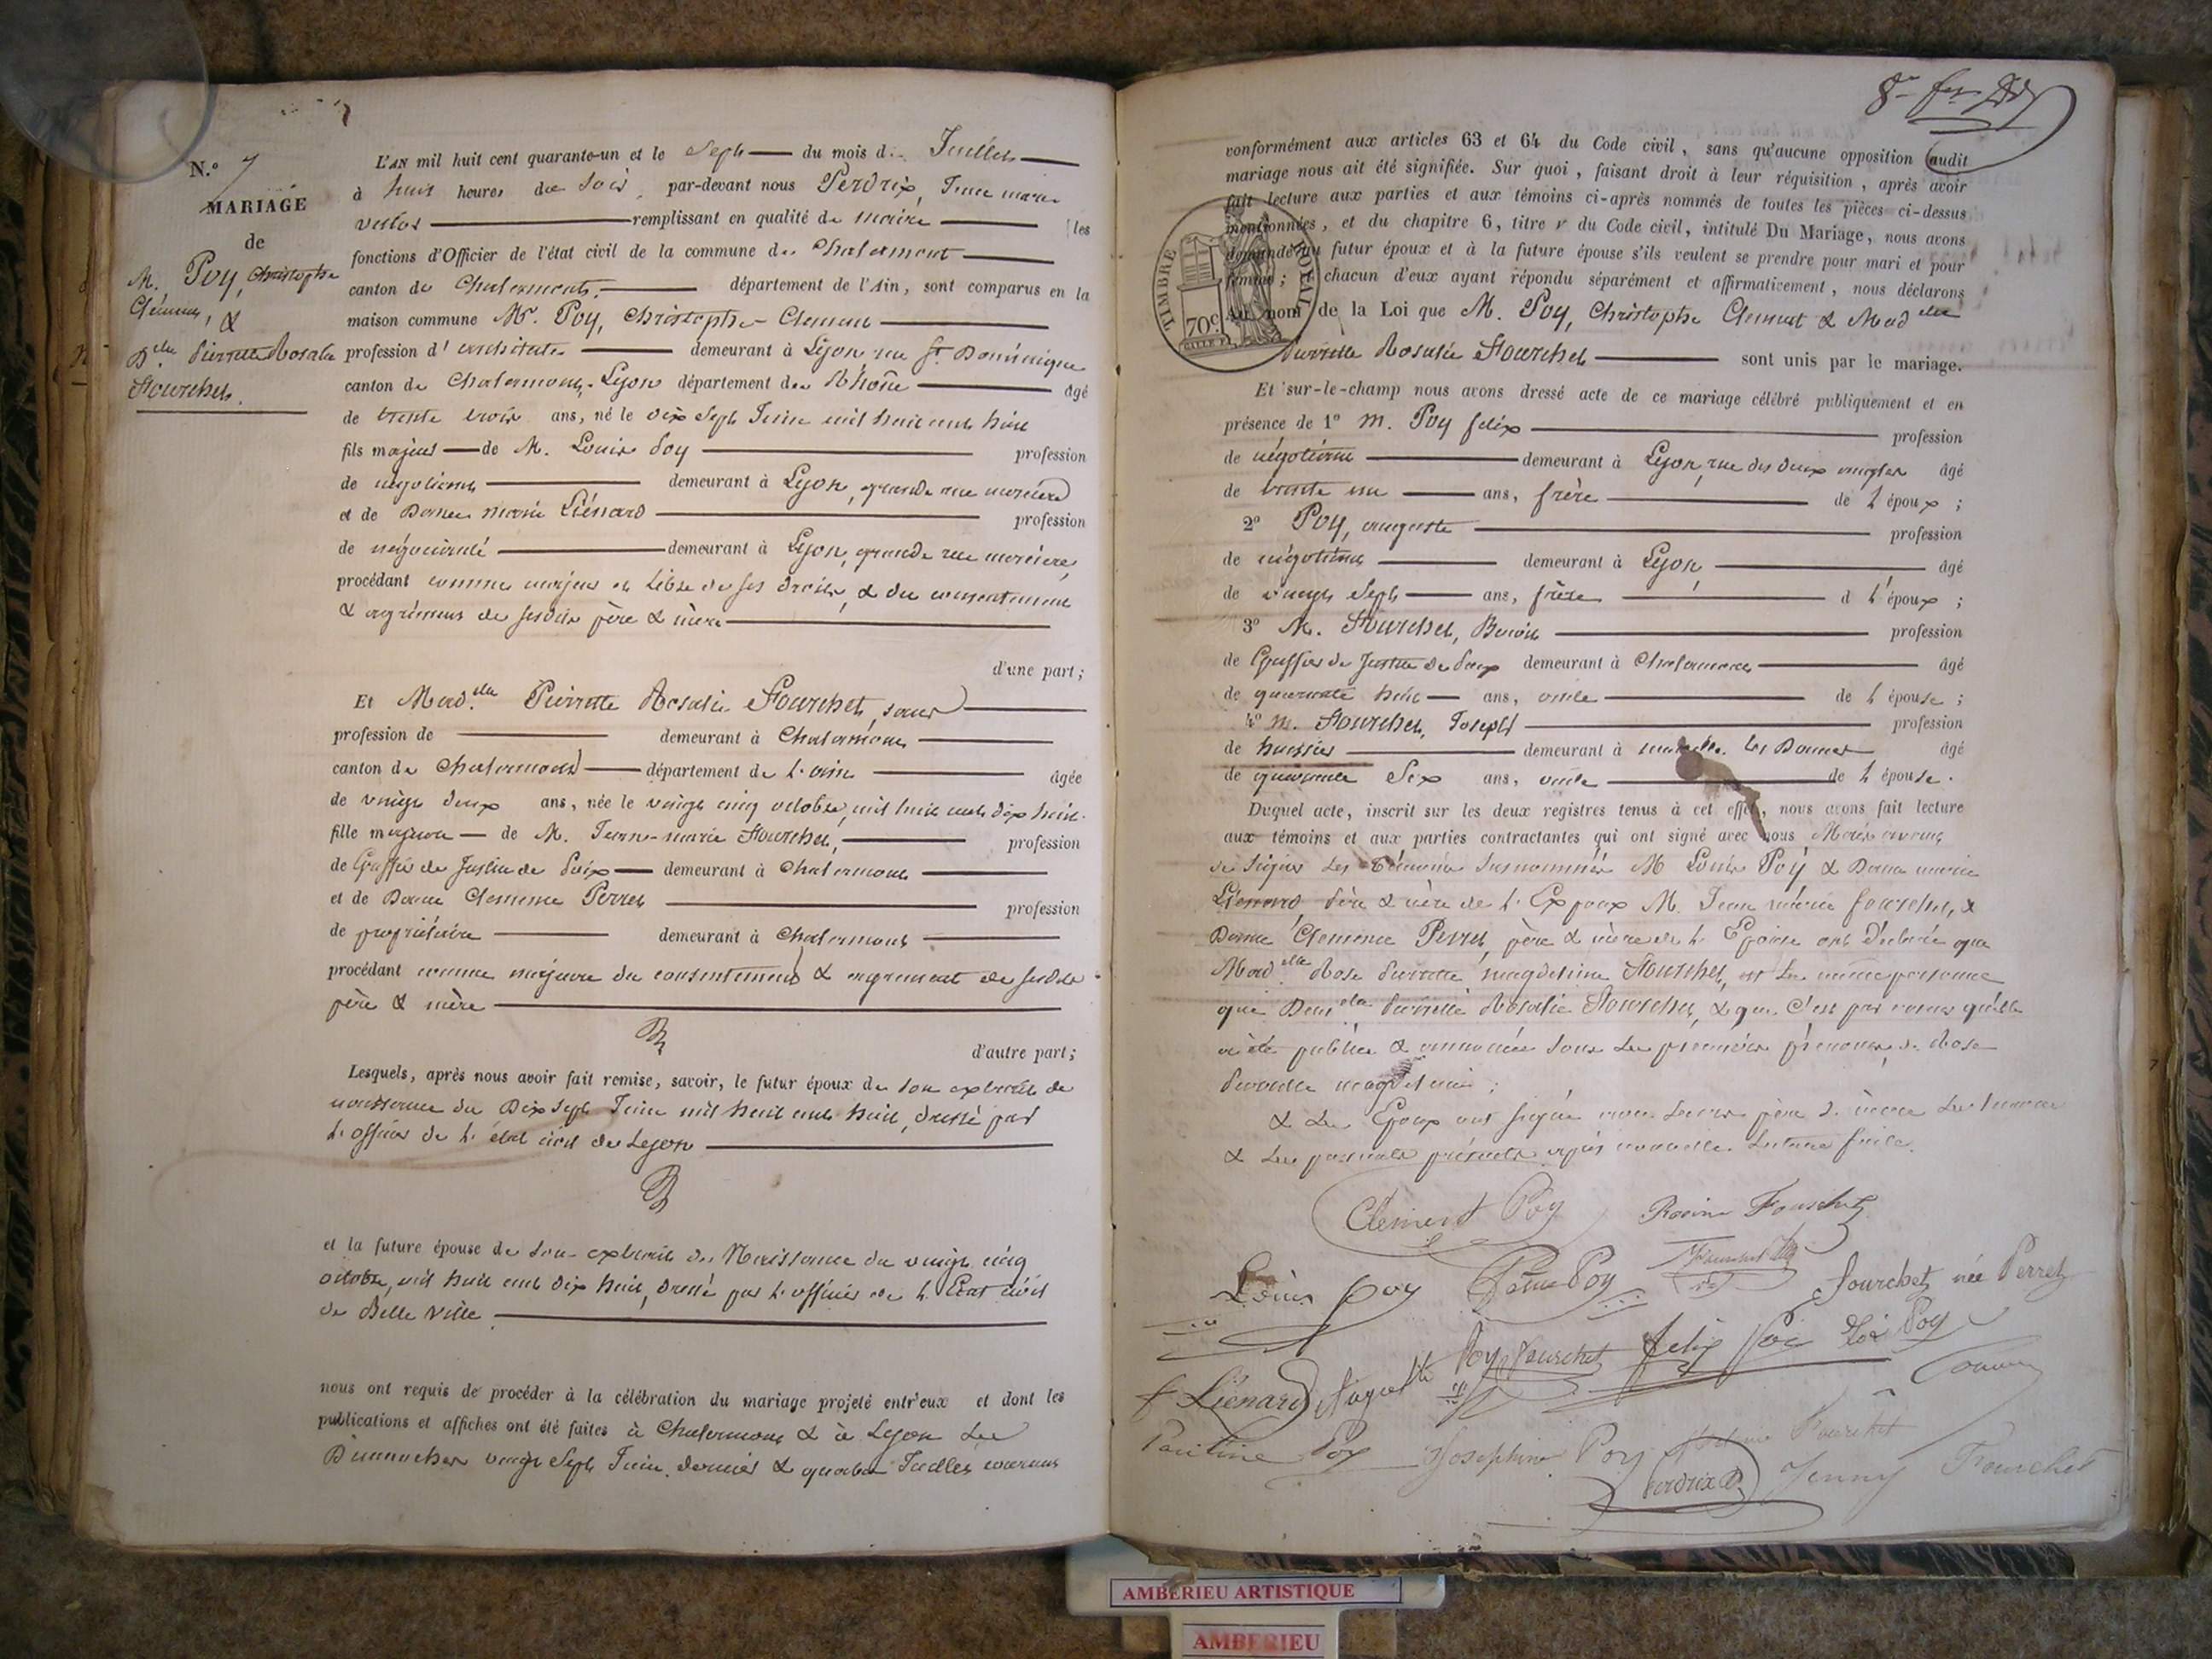 N.º 7
MARIAGE
de
M. Poy, Christophe
Clément, &
Dlle Pierrette Rosalie
Fourchet.
L'AN mil huit cent quarante-un et le Sept du mois de Juillet
à huit heures du Soir, par-devant nous Perdrix, Jean marie
remplissant en qualité de maire les
fonctions d'Officier de l'état civil de la commune de Chalamont
canton de Chalamont, département de l'Ain, sont comparus en la
maison commune Mr. Poy, Christophe Clément
profession d'architecte demeurant à Lyon rue St. Dominique
canton de Lyon département du Rhône âgé
de trente trois ans, né le dix Sept Juin mil huit cent huit
fils majeur de M. Louis Poy profession
de négotiant demeurant à Lyon, grande rue mercière
et de Dame marie Liénard profession
de négociante demeurant à Lyon, grande rue mercière,
procédant comme majeur et libre de ses droits, & du consentement
& agrément de sesdits père & mère
d'une part;
Et Madlle Pierrette Rosalie Fourchet, sans
profession de demeurant à Chalamont
canton de Chalamont département de l'ain âgée
de vingt deux ans, née le vingt cinq octobre mil huit cent dix huit.
fille majeure de M. Jean-marie Fourchet, profession
de Greffier de Justice de Paix demeurant à Chalamont
et de Dame Clemence Perret profession
de propriétaire demeurant à Chalamont
procédant comme majeure du consentement & agrément de sesdits
père & mère
d'autre part;
Lesquels, après nous avoir fait remise, savoir, le futur époux de son extrait de
naissance du Dix Sept Juin mil huit cent huit, dressé par
l'officier de l'état civil de Lyon
et la future épouse de son extrait de Naissance du vingt cinq
octobre, mil huit cent dix huit, dressé par l'officier de l'Etat civil
de Belle ville
nous ont requis de procéder à la célébration du mariage projeté entr'eux et dont les
publications et affiches ont été faites à Chalamont & à Lyon les
Dimanches vingt Sept Juin dernier & quatre Juillet courant
conformément aux articles 63 et 64 du Code civil, sans qu'aucune opposition audit
mariage nous ait été signifiée. Sur quoi, faisant droit à leur réquisition, après avoir
fait lecture aux parties et aux témoins ci-après nommés de toutes les pièces ci-dessus
mentionnées, et du chapitre 6, titre v du Code civil, intitulé Du Mariage, nous avons
demandé au futur époux et à la future épouse s'ils veulent se prendre pour mari et pour
femme; chacun d'eux ayant répondu séparément et affirmativement, nous déclarons
TIMBRE ROYAL
70c
Au nom de la Loi que M. Poy, Christophe Clement & Madlle
Pierrette Rosalie Fourchet sont unis par le mariage.
Et sur-le-champ nous avons dressé acte de ce mariage célébré publiquement et en
présence de 1º M. Poy felix profession
de négotiant demeurant à Lyon, rue des deux angles âgé
de trente un ans, frère de l'époux;
2º Poy, auguste profession
de négotiant demeurant à Lyon, âgé
de vingt Sept ans, frère d l'époux;
3º M. Fourchet, profession
de Greffier de Justice de Paix demeurant à Chalamont âgé
de quarante huit ans, oncle de l'épouse;
4º M. Fourchet, Joseph profession
de huissier demeurant à les Dames âgé
de quarante Six ans, oncle de l'épouse.
Duquel acte, inscrit sur les deux registres tenus à cet effet, nous avons fait lecture
aux témoins et aux parties contractantes qui ont signé avec nous Mais avant
de signer les Témoins susnommés M Louis Poy & Dame marie
Lienard, père & mère de l'Epoux M. Jean marie fourchet, &
Dame Clemence Perret, père & mère de l'Epouse ont déclaré que
Madlle Rose Pierrette magdelaine Fourchet, est la même personne
que Demlle Pierrette Rosalie Fourchet, & que c'est par erreur qu'elle
a été publiée & annoncée sous les premiers prénoms de Rose
Pierrette magdelaine;
& les Epoux ont signé avec leurs père & mère les témoins
& les parents présents après nouvelle lecture faite.
Clément Poy Fourchet
Louis Poy Poy Fourchet née Perret
Poy Fourchet felix Poy Poy
Lienard
Pauline Poy Josephine Poy Fourchet
Perdrix Jenny Fourchet
AMBERIEU ARTISTIQUE
AMBERIEU